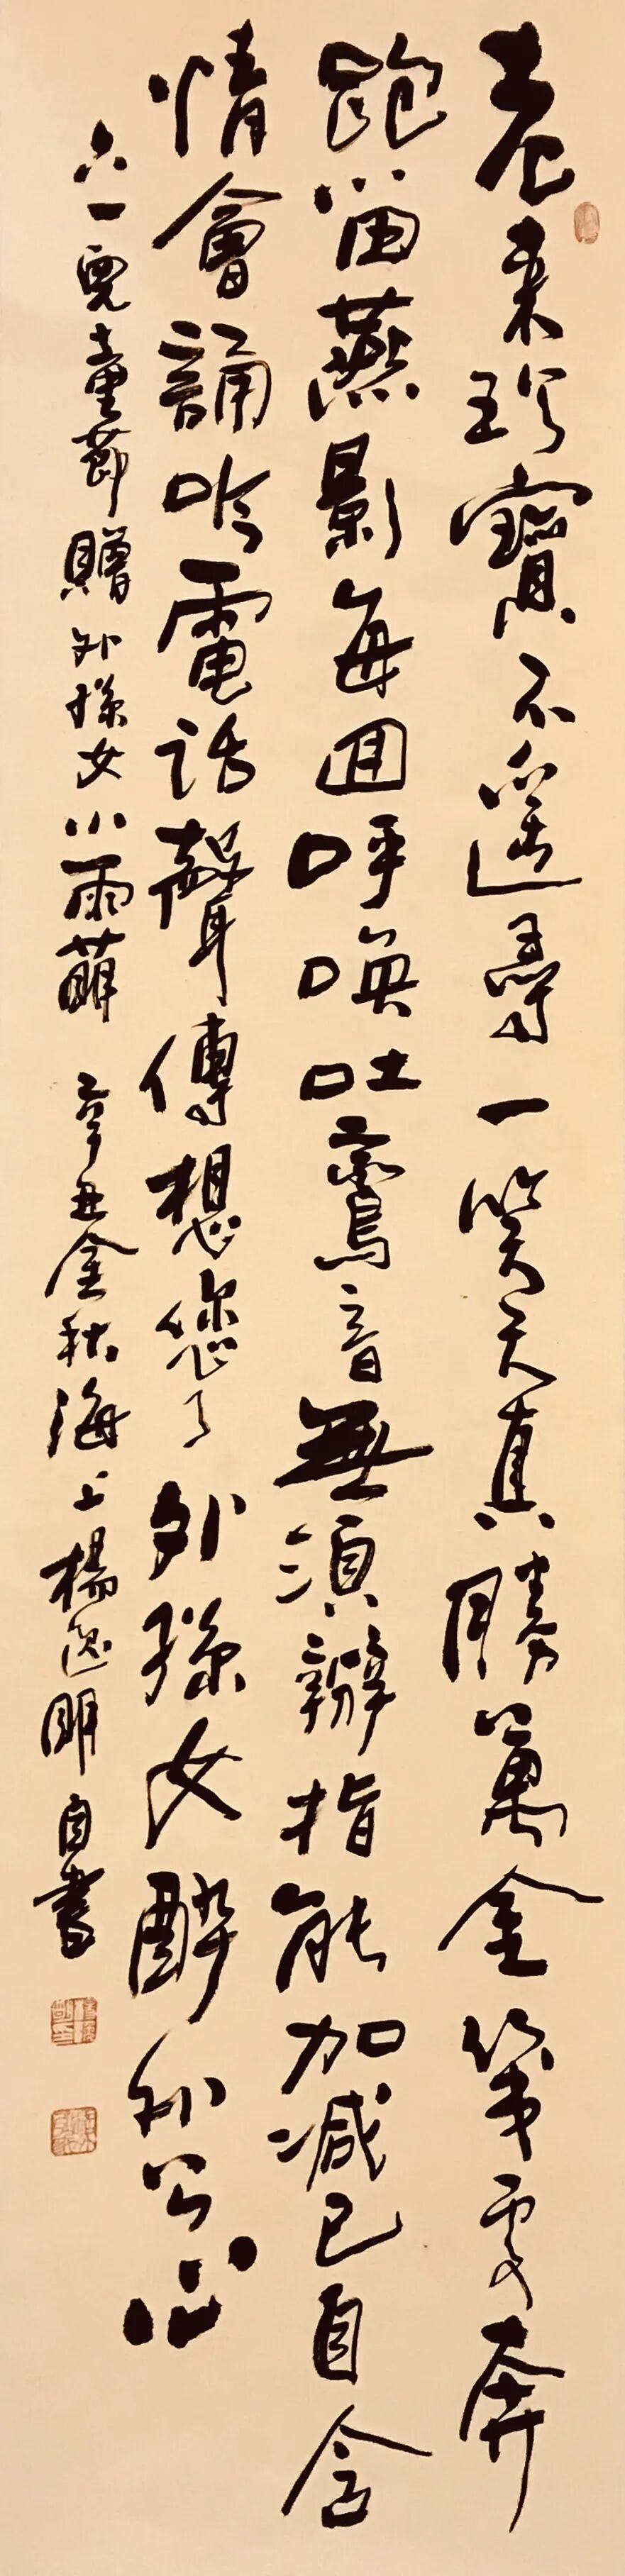 老来珍寶不遥尋一笑天真勝萬金幾處奔
跑留燕影每回呼喚吐鶯音無須辦指能加減已自含
情會誦吟電話聲傳想您了外孫女醉外公心
六一兒童節贈外孫女小雨萌 辛丑金秋海上楊逸明自書